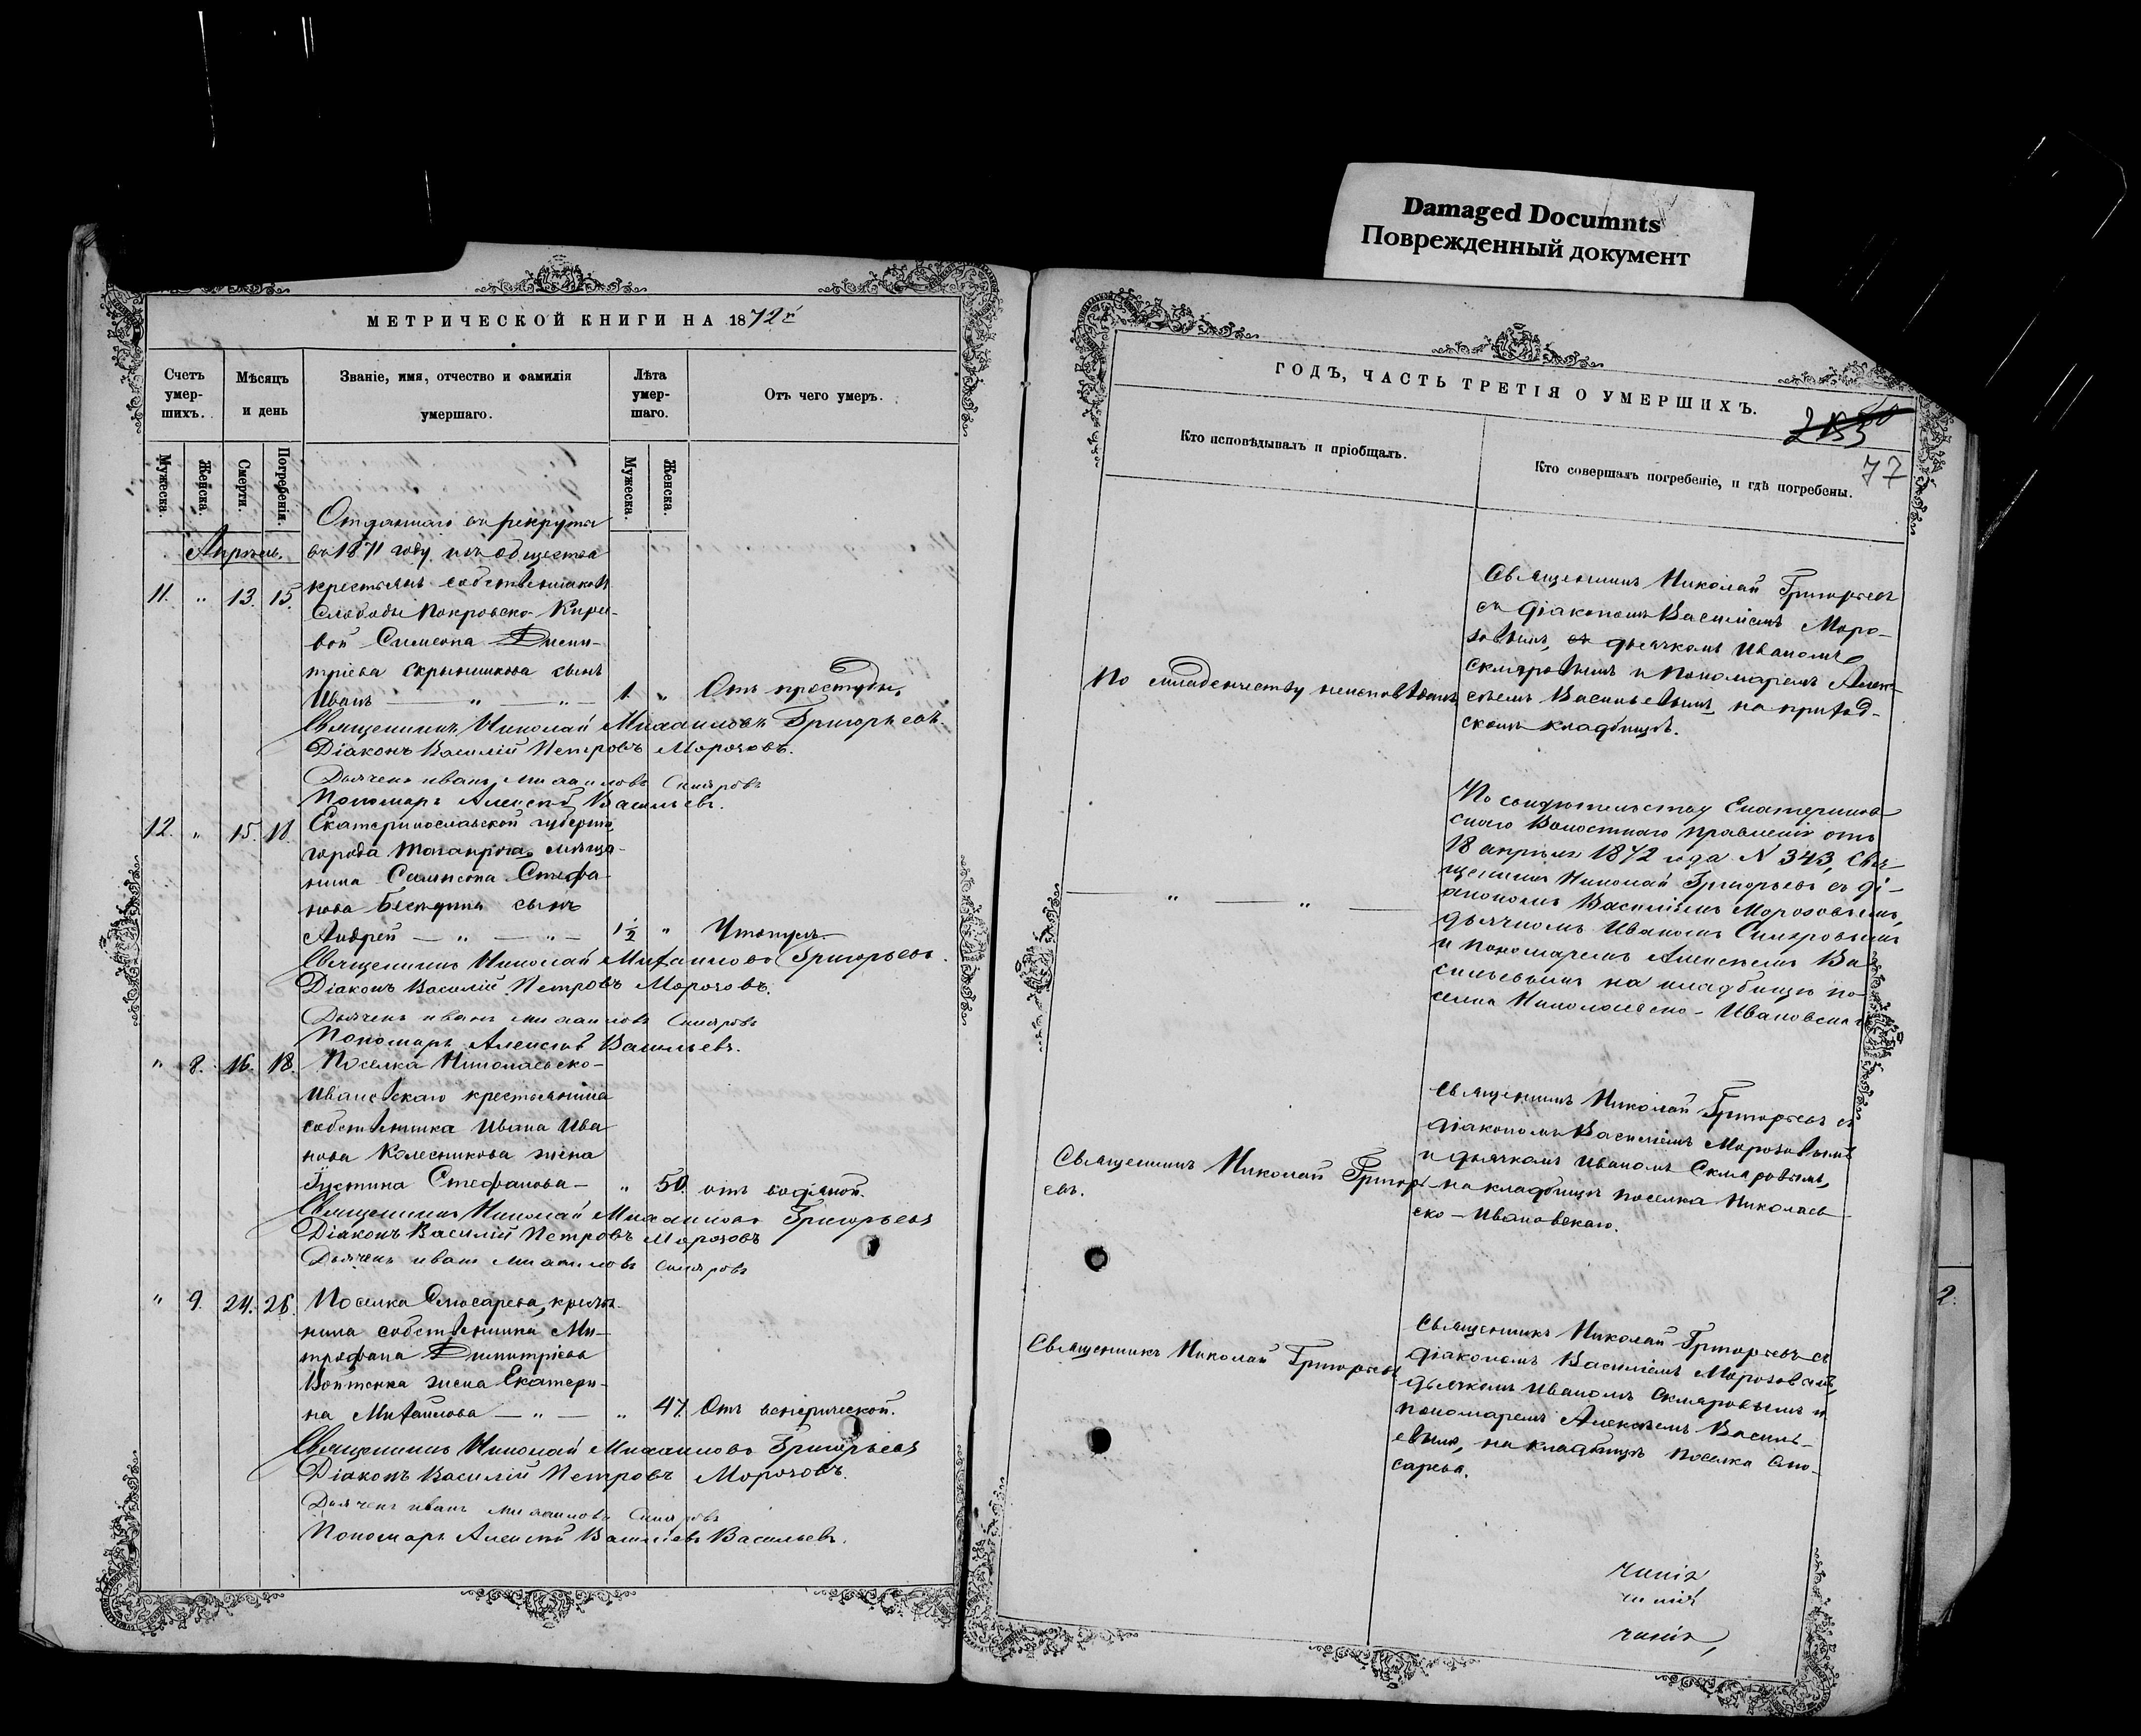 Damaged Documnts
Поврежденный документ
МЕТРИЧЕСКОЙ КНИГИ НА 1872 г
Счетъ умер-шихъ.
Мѣсяцъ и день
Званіе, имя, отчество и фамилія умершаго.
Лѣта умер-шаго.
Отъ чего умеръ.
Мужеска.
Женска.
Смерти.
Погребенія.
Мужеска.
Женска.
Апрѣль.
Отданнаго въ рекруты
въ 1871 году изъ общества
11. " 13. 15. крестьянъ собственниковъ
Слободы Покровско-Кирѣе-
вой Симеона Дими-
тріева Скрынникова сынъ
Иванъ — " — " — 1. " Отъ простуды.
Священникъ Николай Михаиловъ Григорьевъ.
Діаконъ Василій Петровъ Морозовъ.
Дьячекъ Иванъ Михаиловъ Скляровъ
Пономарь Алексѣй Васильевъ.
12. " 15. 18. Екатеринославской губерніи,
города Таганрога, мѣща-
нина Сампсона Стефа-
нова сынъ
Андрей — " — " — 1½ " Утонулъ.
Священникъ Николай Михаиловъ Григорьевъ.
Діаконъ Василій Петровъ Морозовъ.
Дьячекъ Иванъ Михаиловъ Скляровъ
Пономарь Алексѣй Васильевъ.
" 8. 16. 18. Поселка Николаевско-
Ивановскаго крестьянина
собственника Ивана Ива
нова Колесникова жена
Іустина Стефанова — " 50. отъ водяной.
Священникъ Николай Михаиловъ Григорьевъ
Діаконъ Василій Петровъ Морозовъ
Дьячекъ Иванъ Михаиловъ Скляровъ
" 9. 24. 26. Поселка Слюсарева, крестья-
нина собственника Ми-
трофана Димитріева
Войтенка жена Екатери-
на Михайлова — " — " 47. Отъ венерической.
Священникъ Николай Михаиловъ Григорьевъ
Діаконъ Василій Петровъ Морозовъ.
Дьячекъ Иванъ Михаиловъ Скляровъ
Пономарь Алексѣй Васильевъ Васильевъ.
ГОДЪ, ЧАСТЬ ТРЕТІЯ О УМЕРШИХЪ.
77
Кто исповѣдывалъ и пріобщалъ.
Кто совершалъ погребеніе, и гдѣ погребены.
По младенчеству неисповѣданъ
Священникъ Николай Григорьевъ
съ діакономъ Василіемъ Моро-
зовымъ, дьячкомъ Иваномъ
Скляровымъ и Пономаремъ Алек-
сѣемъ Васильевымъ на приход-
скомъ кладбищѣ.
— " — " —
По свидѣтельству Екатеринов-
скаго Волостнаго Правленія отъ
18 апрѣля 1872 года N 343, Свя-
щенникъ Николай Григорьевъ съ ді-
акономъ Василіемъ Морозовымъ,
дьячкомъ Иваномъ Скляровымъ
и пономаремъ Алексѣемъ Ва
сильевымъ на кладбищѣ по-
селка Николаевско-Ивановскаго
Священникъ Николай Григорь
евъ.
Священникъ Николай Григорьевъ съ
діакономъ Василіемъ Морозовымъ
и дьячкомъ Иваномъ Скляровымъ,
на кладбищѣ поселка Николаев
ско-Ивановскаго.
Священникъ Николай Григорьевъ
Священникъ Николай Григорьевъ съ
діакономъ Василіемъ Морозовымъ,
дьячкомъ Иваномъ Скляровымъ и
пономаремъ Алексѣемъ Василь-
евымъ, на кладбищѣ поселка Слю-
сарева.
2.